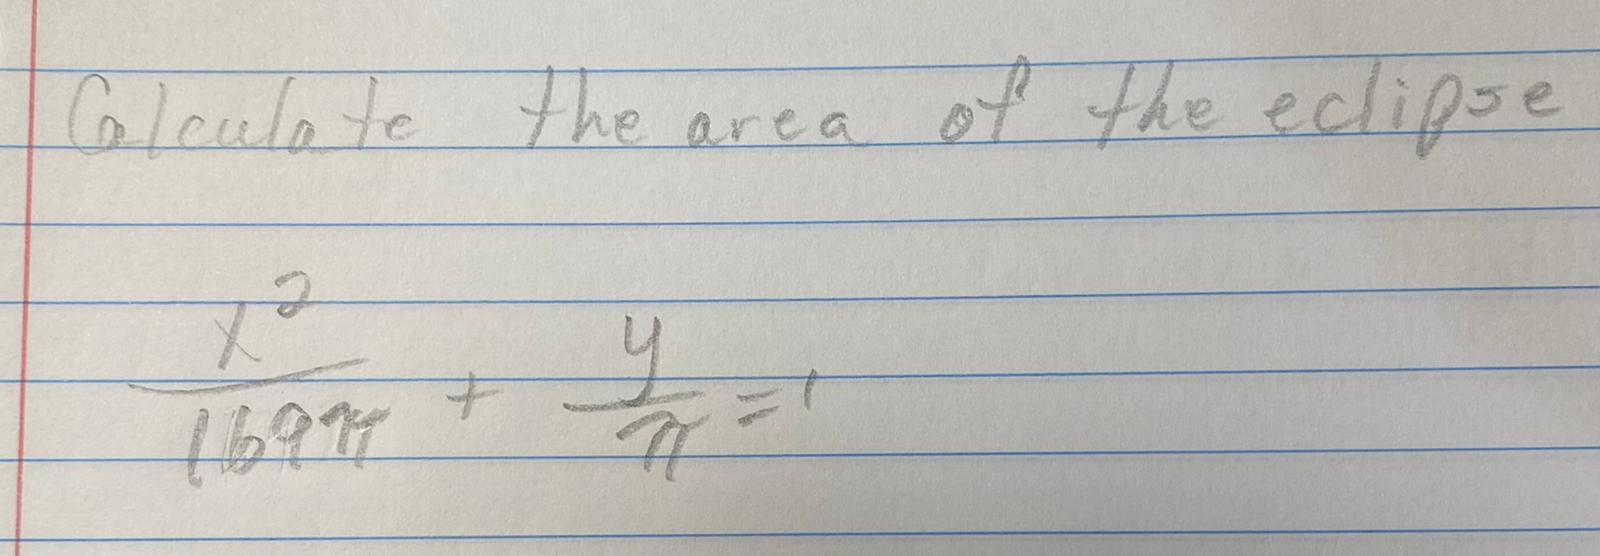 Calculate the area of the eclipse
x²/169π + y/π = 1